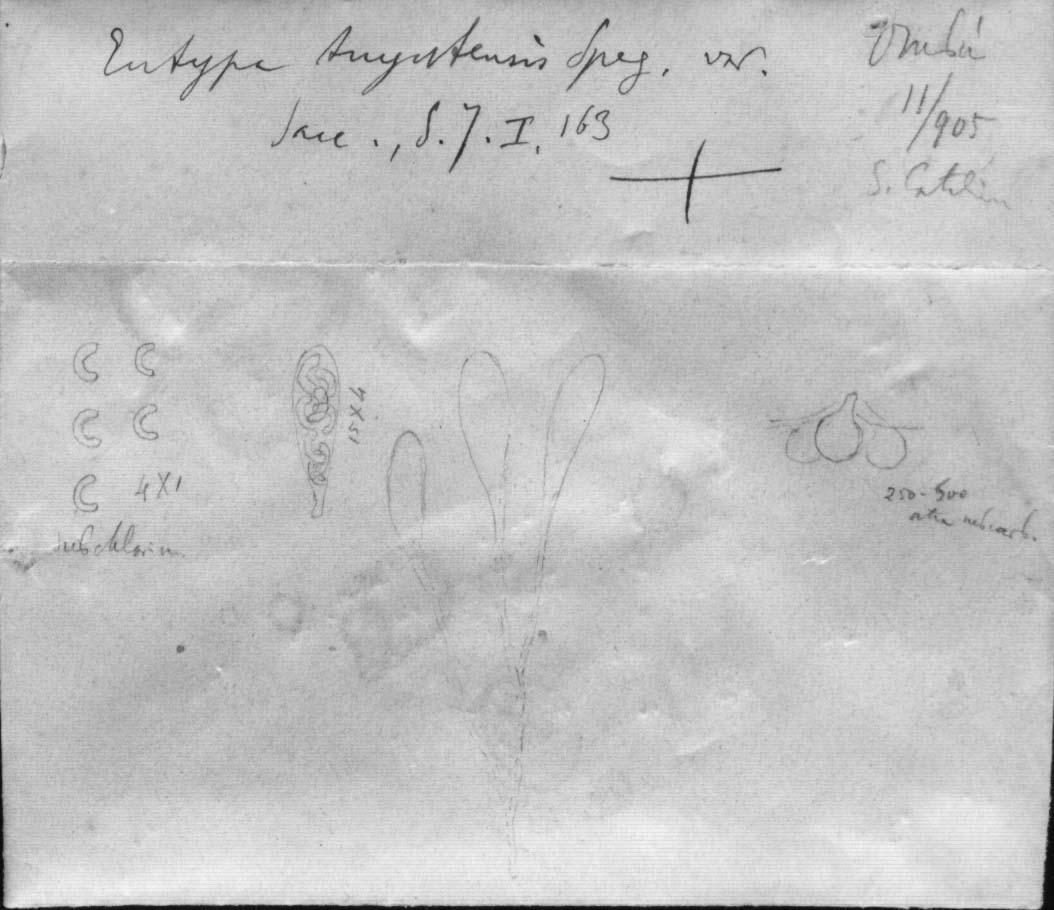 Eutypa tuyutensis Speg. var.
Sacc., S. F. I. 163
Ombú
11/905
S. Catalin
4X1
subchlorin.
15X4
250-500
atra subcarb.